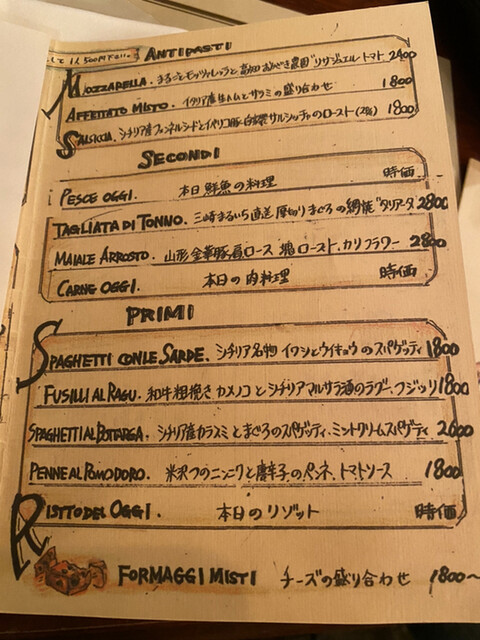 ANTIPASTI
MOZZARELLA. まるごとモッツァレッラと高知おかざき農園"リサジュエル"トマト 2400
AFFETTATO MISTO. イタリア産生ハムとサラミの盛り合わせ 1800
SALSICCIA. シチリア産フェンネルシードとイベリコ豚 サルシッチャのロースト(2本) 1800
SECONDI
PESCE OGGI. 本日鮮魚の料理 時価
TAGLIATA DI TONNO. 三崎まるいち直送 厚切りまぐろの網焼"タリアータ 2800
MAIALE ARROSTO. 山形金華豚肩ロース 塩ロースト. カリフラワー 2800
CARNE OGGI. 本日の肉料理 時価
PRIMI
SPAGHETTI CON LE SARDE. シチリア名物 イワシとウイキョウのスパゲッティ 1800
FUSILLI AL RAGU. 和牛粗挽き カメノコとシチリアマルサラ酒のラグー. フジッリ 1800
SPAGHETTI AL BOTTARGA. シチリア産カラスミとまぐろのスパゲッティ. ミントクリームスパゲティ 2600
PENNE AL POMODORO. 米沢つのニンニクと唐辛子のペンネ. トマトソース 1800
RISTTO DEL OGGI. 本日のリゾット 時価
FORMAGGI MISTI チーズの盛り合わせ 1800〜